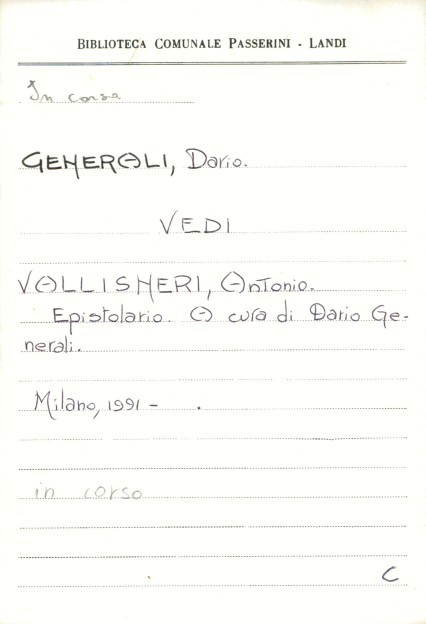 BIBLIOTECA COMUNALE PASSERINI - LANDI
In corso
GENERALI, Dario.
VEDI
VALLISNERI, Antonio.
Epistolario. A cura di Dario Ge-
nerali.
Milano, 1991 - .
in corso
C